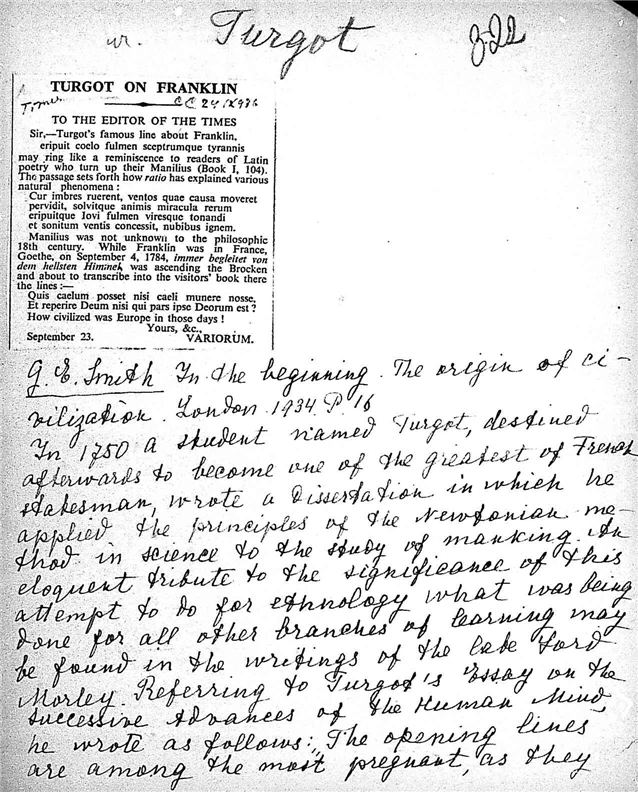 Turgot 322
TURGOT ON FRANKLIN
Times
TO THE EDITOR OF THE TIMES
Sir,—Turgot's famous line about Franklin,
eripuit coelo fulmen sceptrumque tyrannis
may ring like a reminiscence to readers of Latin
poetry who turn up their Manilius (Book I, 104).
The passage sets forth how ratio has explained various
natural phenomena :
Cur imbres ruerent, ventos quae causa moveret
pervidit, solvitque animis miracula rerum
eripuitque Iovi fulmen viresque tonandi
et sonitum ventis concessit, nubibus ignem.
Manilius was not unknown to the philosophic
18th century. While Franklin was in France,
Goethe, on September 4, 1784, immer begleitet von
dem hellsten Himmel, was ascending the Brocken
and about to transcribe into the visitors' book there
the lines :—
Quis caelum posset nisi caeli munere nosse,
Et reperire Deum nisi qui pars ipse Deorum est ?
How civilized was Europe in those days !
Yours, &c.,
September 23. VARIORUM.
G. E. Smith In the beginning. The origin of ci-
vilization. London 1934. P. 16
In 1750 a student named Turgot, destined
afterwards to become one of the greatest of French
statesman, wrote a Dissertation in which he
applied the principles of the Newtonian me-
thod in science to the study of manking. An
eloquent tribute to the significance of this
attempt to do for ethnology what was being
done for all other branches of learning may
be found in the writings of the late Lord
Morley. Referring to Turgot's Essay on the
Successive Advances of the Human Mind,
he wrote as follows: „The opening lines
are among the most pregnant, as they